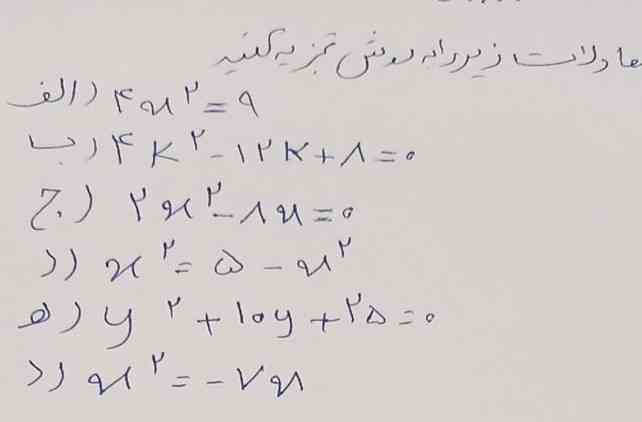 معادلات زیر را به روش تجزیه کنید
الف) ۴x^۲ = ۹
ب) ۴k^۲ - ۱۲k + ۸ = ۰
ج) ۲x^۲ - ۸x = ۰
د) x^۲ = ۵ - x^۲
ه) y^۲ + ۱۰y + ۲۵ = ۰
د) x^۲ = -۷x